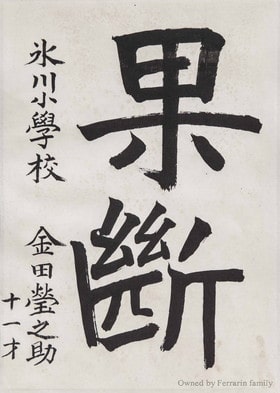 果斷
氷川小學校 金田瑩之助
十一才
Owned by Ferrarin family